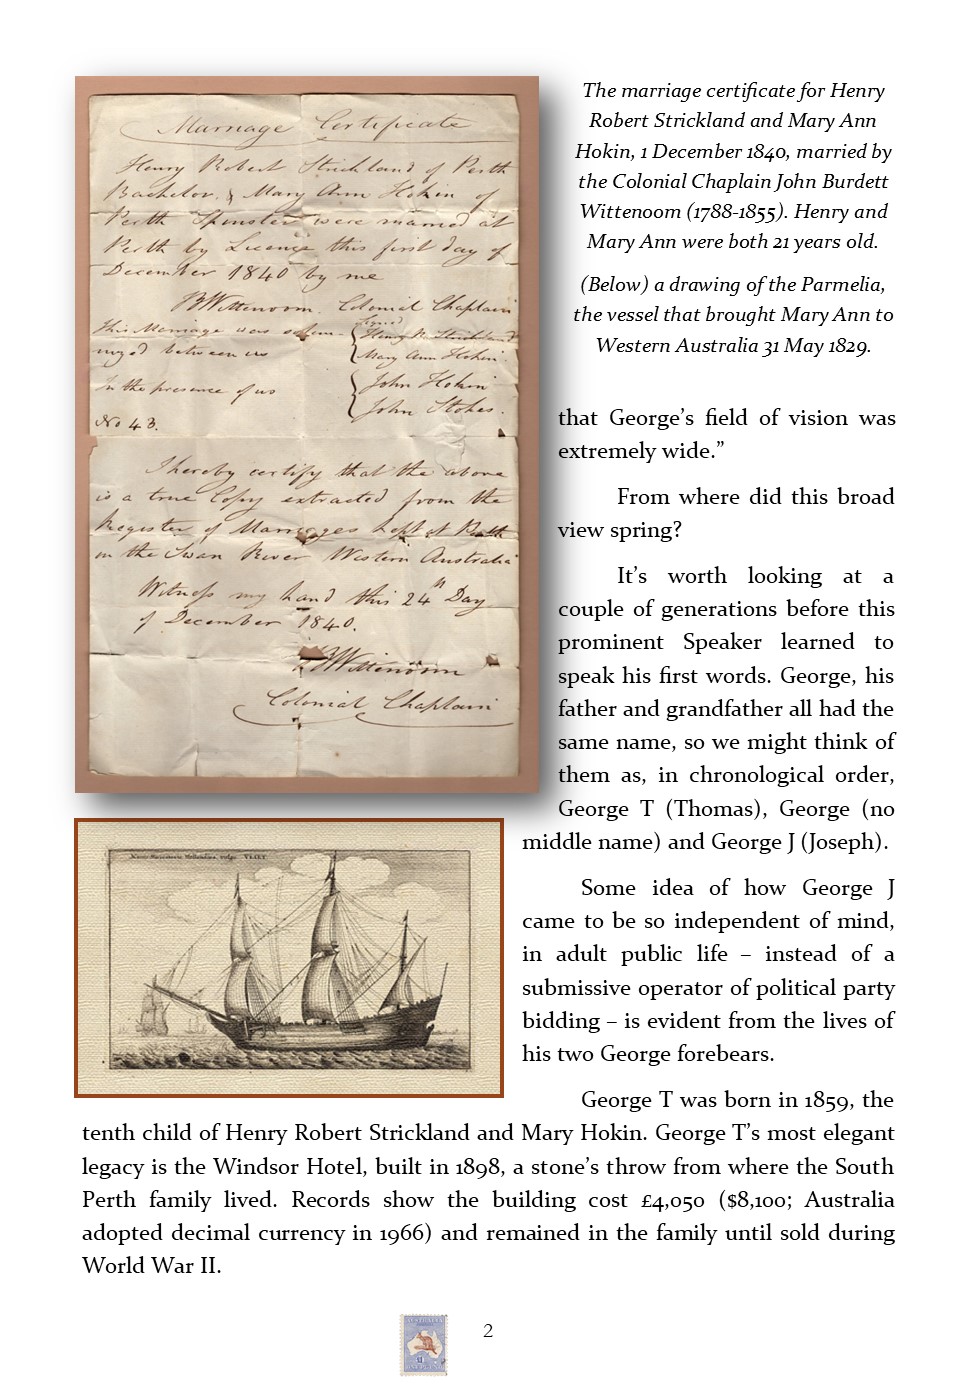 Marriage Certificate
Henry Robert Strickland of Perth
Bachelor & Mary Ann Hokin of
Perth Spinster were married at
Perth by Licence this first day of
December 1840 by me
JBWittenoom. Colonial Chaplain
This Marriage was solem-
nized between us
signed
Henry R. Strickland
Mary Ann Hokin.
In the presence of us
John Hokin
John Stokes.
No 43.
I hereby certify that the above
is a true Copy extracted from the
Register of Marriages kept at Perth
in the Swan River Western Australia
Witness my hand this 24th Day
of December 1840.
JBWittenoom
Colonial Chaplain
The marriage certificate for Henry
Robert Strickland and Mary Ann
Hokin, 1 December 1840, married by
the Colonial Chaplain John Burdett
Wittenoom (1788-1855). Henry and
Mary Ann were both 21 years old.
(Below) a drawing of the Parmelia,
the vessel that brought Mary Ann to
Western Australia 31 May 1829.
that George’s field of vision was
extremely wide.”
From where did this broad
view spring?
It’s worth looking at a
couple of generations before this
prominent Speaker learned to
speak his first words. George, his
father and grandfather all had the
same name, so we might think of
them as, in chronological order,
George T (Thomas), George (no
middle name) and George J (Joseph).
Some idea of how George J
came to be so independent of mind,
in adult public life – instead of a
submissive operator of political party
bidding – is evident from the lives of
his two George forebears.
George T was born in 1859, the
tenth child of Henry Robert Strickland and Mary Hokin. George T’s most elegant
legacy is the Windsor Hotel, built in 1898, a stone’s throw from where the South
Perth family lived. Records show the building cost £4,050 ($8,100; Australia
adopted decimal currency in 1966) and remained in the family until sold during
World War II.
AUSTRALIA
2